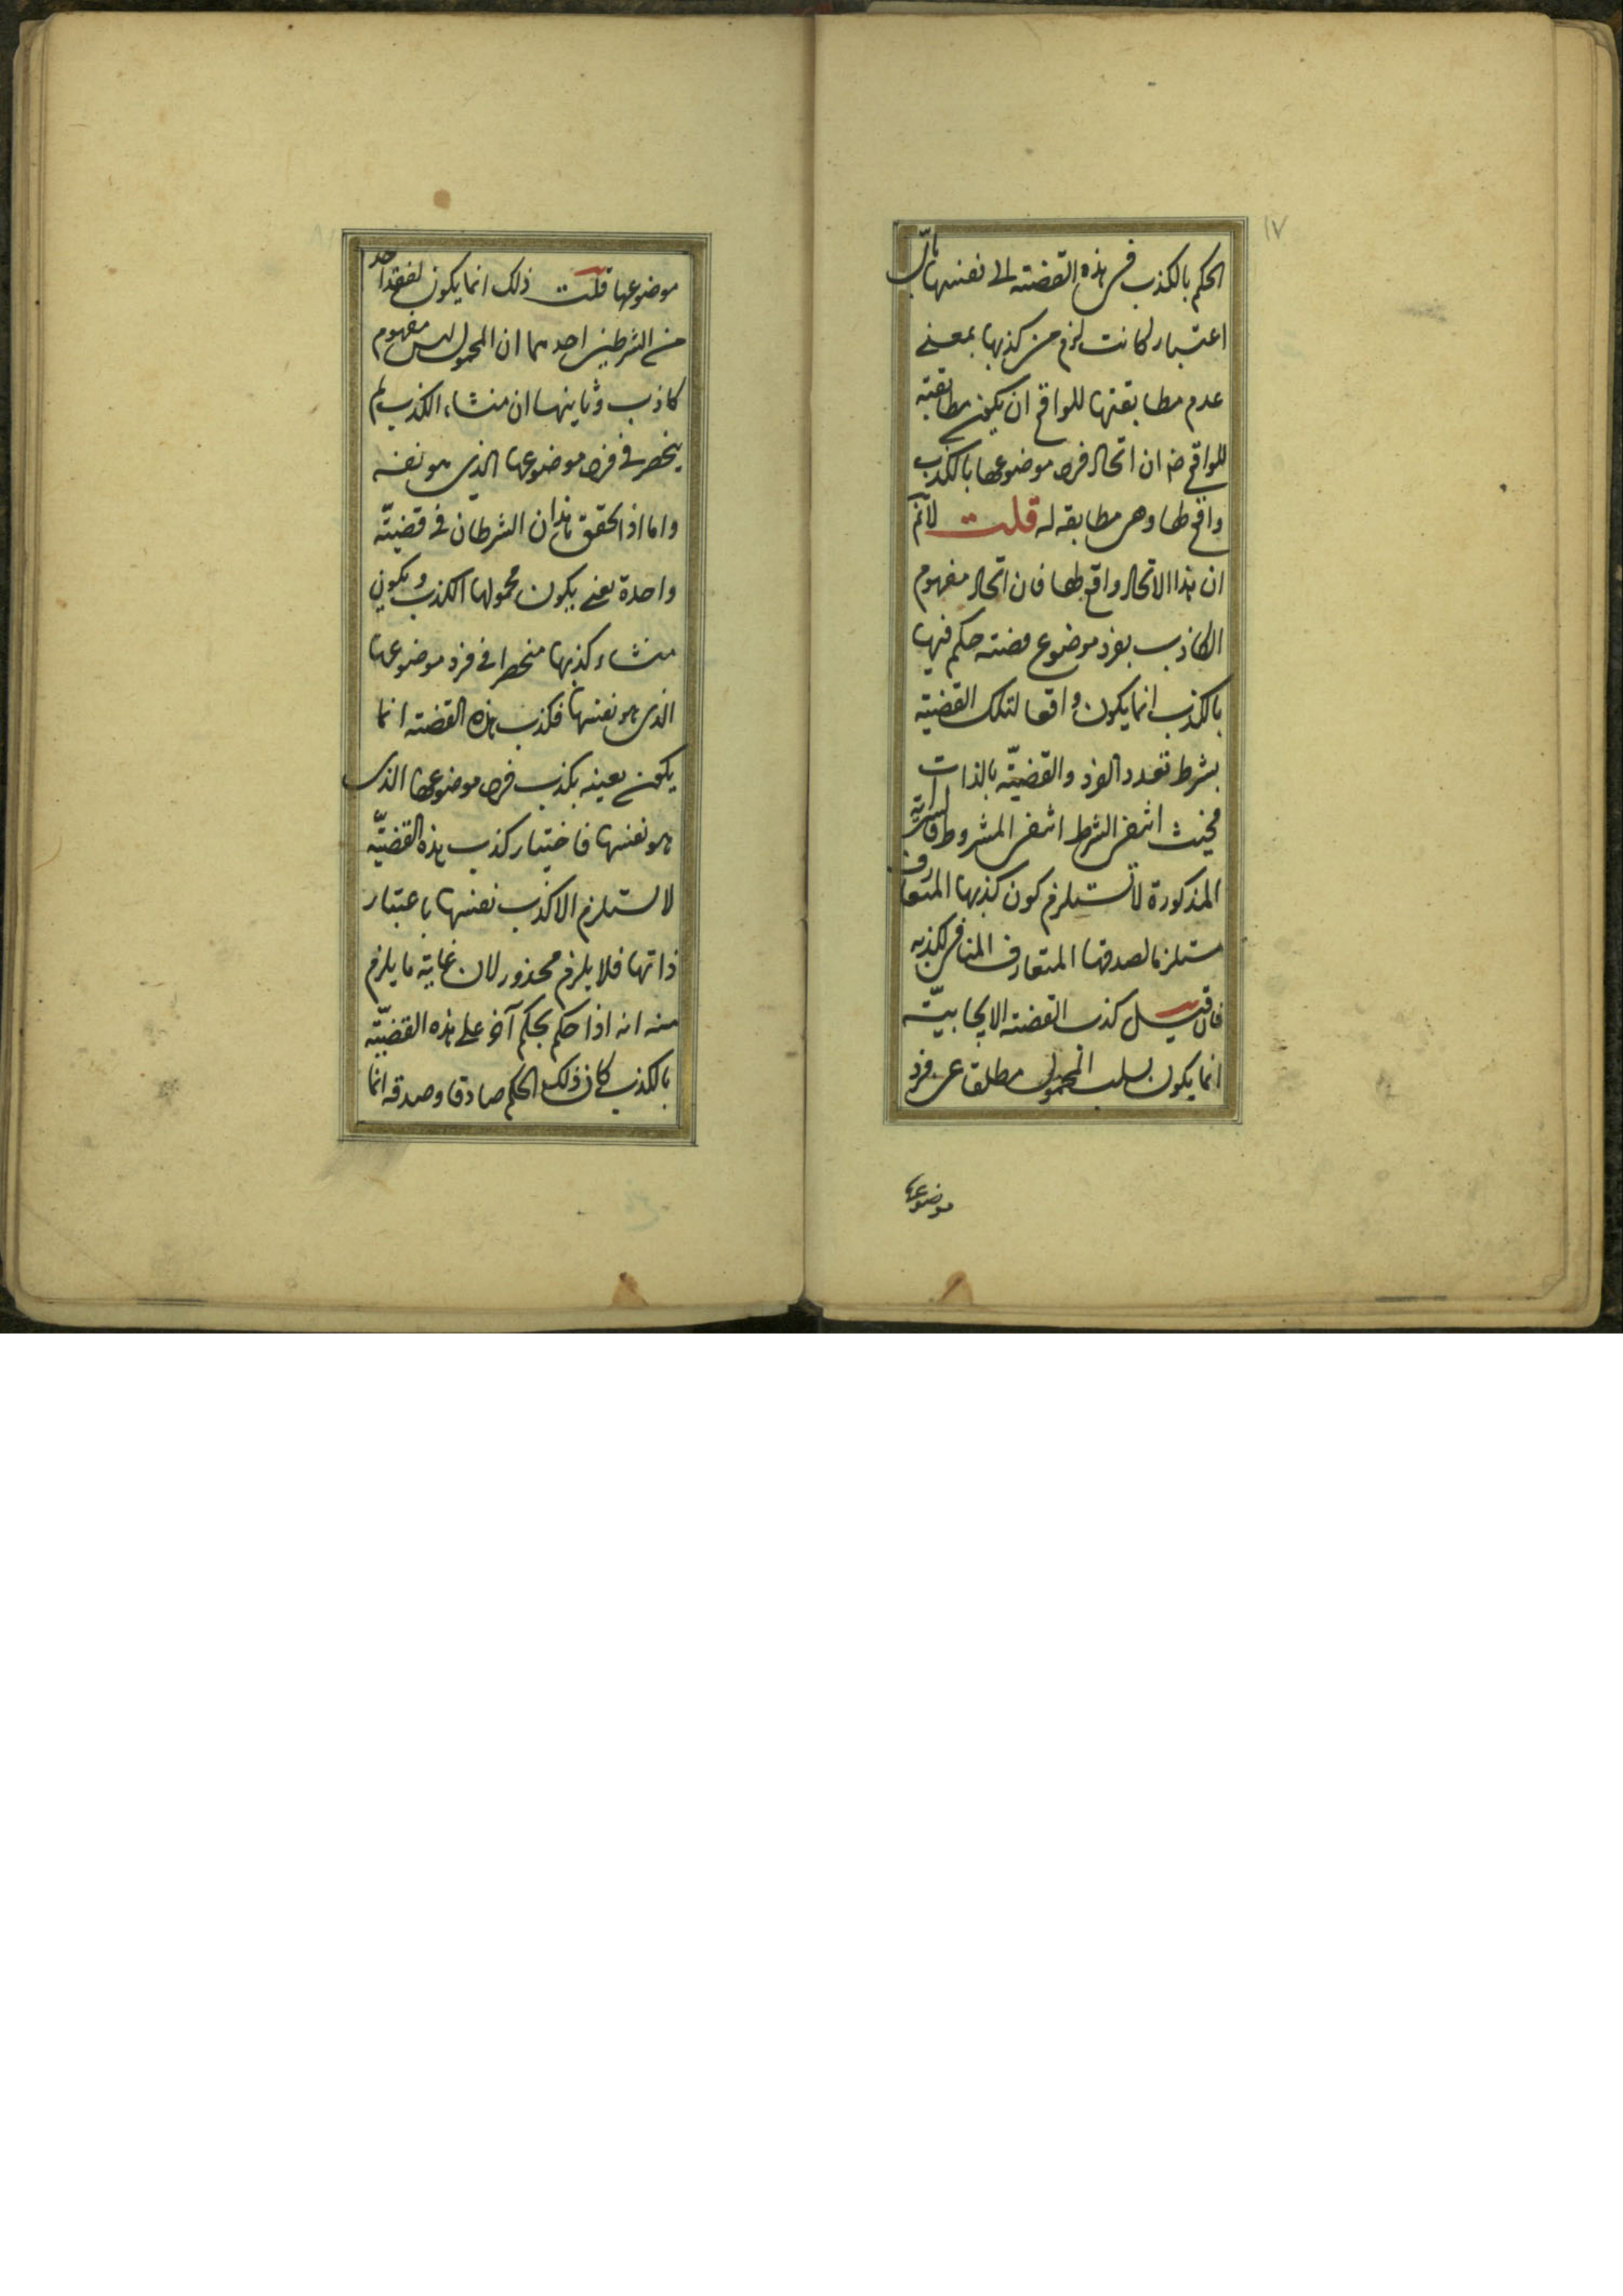 ١٧
الحكم بالكذب فى هذه القضية الى نفسها باىّ
اعتبار كانت لزم من كذبها بمعنى
عدم مطابقتها للواقع ان يكون مطابقة
للواقع ضر ان اتحاد فرد موضوعها بالكذب
واقع لها وهى مطابقة له قلت لانم
ان هذا الاتحاد واقع لها فان اتحاد مفهوم
الكاذب بفرد موضوع قضية حكم فيها
بالكذب انما يكون واقعا لتلك القضية
بشرط تعدد الفرد والقضيّة بالذات
فحيث انتفى الشرط انتفى المشروط
المذكورة لا تستلزم كون كذبها المتعارف
مستلزما لصدقها المتعارف المنافى لكذبه
فان قيل كذب القضية الايجابيّة
انما يكون بسلب المحمول مطلقا عن فرد
موضوعها
موضوعها قلت ذلك انما يكون لفقد احد
من الشرطين احدهما ان المحمول ليس مفهوم
كاذب وثانيهما ان منشاء الكذب لم
ينحصر فى فرد موضوعها الذى هو نفسه
واما اذا تحقق هذان الشرطان فى قضيّة
واحدة يعنى يكون محمولها الكذب ويكون
منشاء كذبها منحصرا فى فرد موضوعها
الذى هو نفسها فكذب هذه القضية انما
يكون بعينه بكذب فرد موضوعها الذى
هو نفسها فاختيار كذب هذه القضيّة
لا يستلزم الا كذب نفسها باعتبار
ذاتها فلا يلزم محذور لان غاية ما يلزم
منه انه اذا حكم بحكم آخر على هذه القضيّة
بالكذب كان ذلك الحكم صادقا وصدقه انما